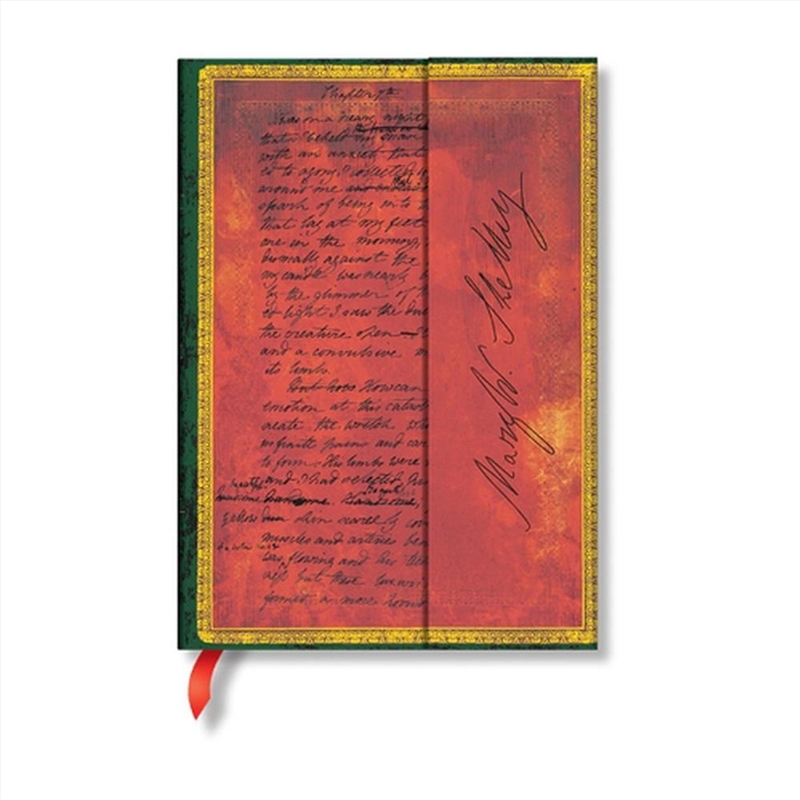 Chapter 7th
It was on a dreary night
that I beheld my man
with an anxiety that
ed to agony, I collected
around me
spark of being into t
that lay at my feet
one in the morning,
dismally against the
my candle was nearly b
by the glimmer of
ed light I saw the dul
the creature open — It
and a convulsive m
its limbs.
But how How can
emotion at this catast
create the wretch who
infinite pains and car
to form. His limbs were
and I had selected his
handsome. Handsome,
yellow skin scarcely cov
muscles and arteries ben
was flowing and his
ness but these luxuri
formed a more horrid
Mary W. Shelley